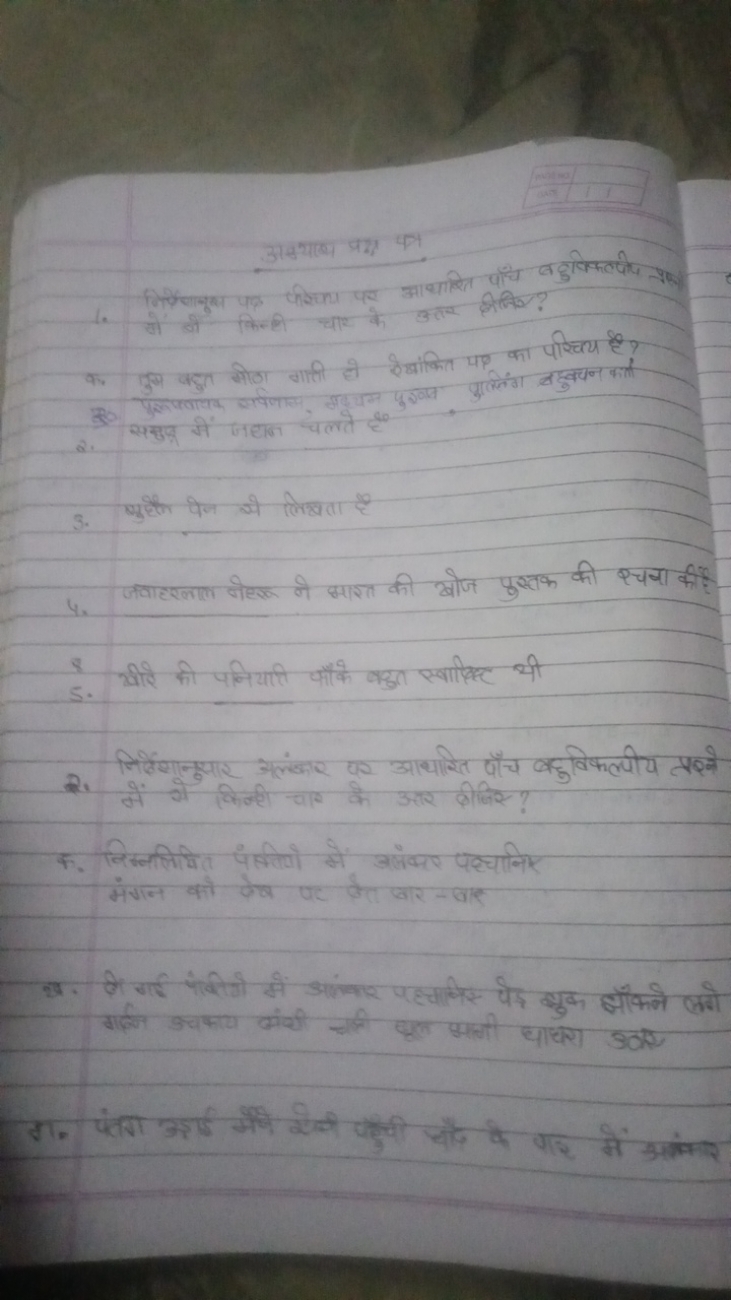 अभ्यास प्रश्न पत्र
1. निर्देशानुसार पद परिचय पर आधारित पाँच बहुविकल्पीय प्रश्नों
में से किन्ही चार के उत्तर दीजिए?
क. तुम बहुत मीठा गाती हो रेखांकित पद का परिचय है?
पुरुषवाचक सर्वनाम, मध्यम पुरुष, पुल्लिंग बहुवचन कर्ता
2. समुद्र में जहाज चलते है
3. पेन से लिखता है
4. जवाहरलाल नेहरू ने भारत की खोज पुस्तक की रचना की है
5. खीरे की पनियाति फाँके बहुत स्वादिष्ट थी
2. निर्देशानुसार अलंकार पर आधारित पाँच बहुविकल्पीय प्रश्नो
में से किन्ही चार के उत्तर दीजिए?
क. निम्नलिखित पंक्तियो में अलंकार पहचानिए
मंगन को देख पट देत बार-बार
ख. दी गई पंक्तियो में अलंकार पहचानिए पेड़ झुक झाँकने लगे
गर्दन उचकाय आंधी चली धूल भागी घाघरा उठाए
ग. पतंग उड़ाई मैंने ऐसी पहुँची चाँद के पार में अलंकार